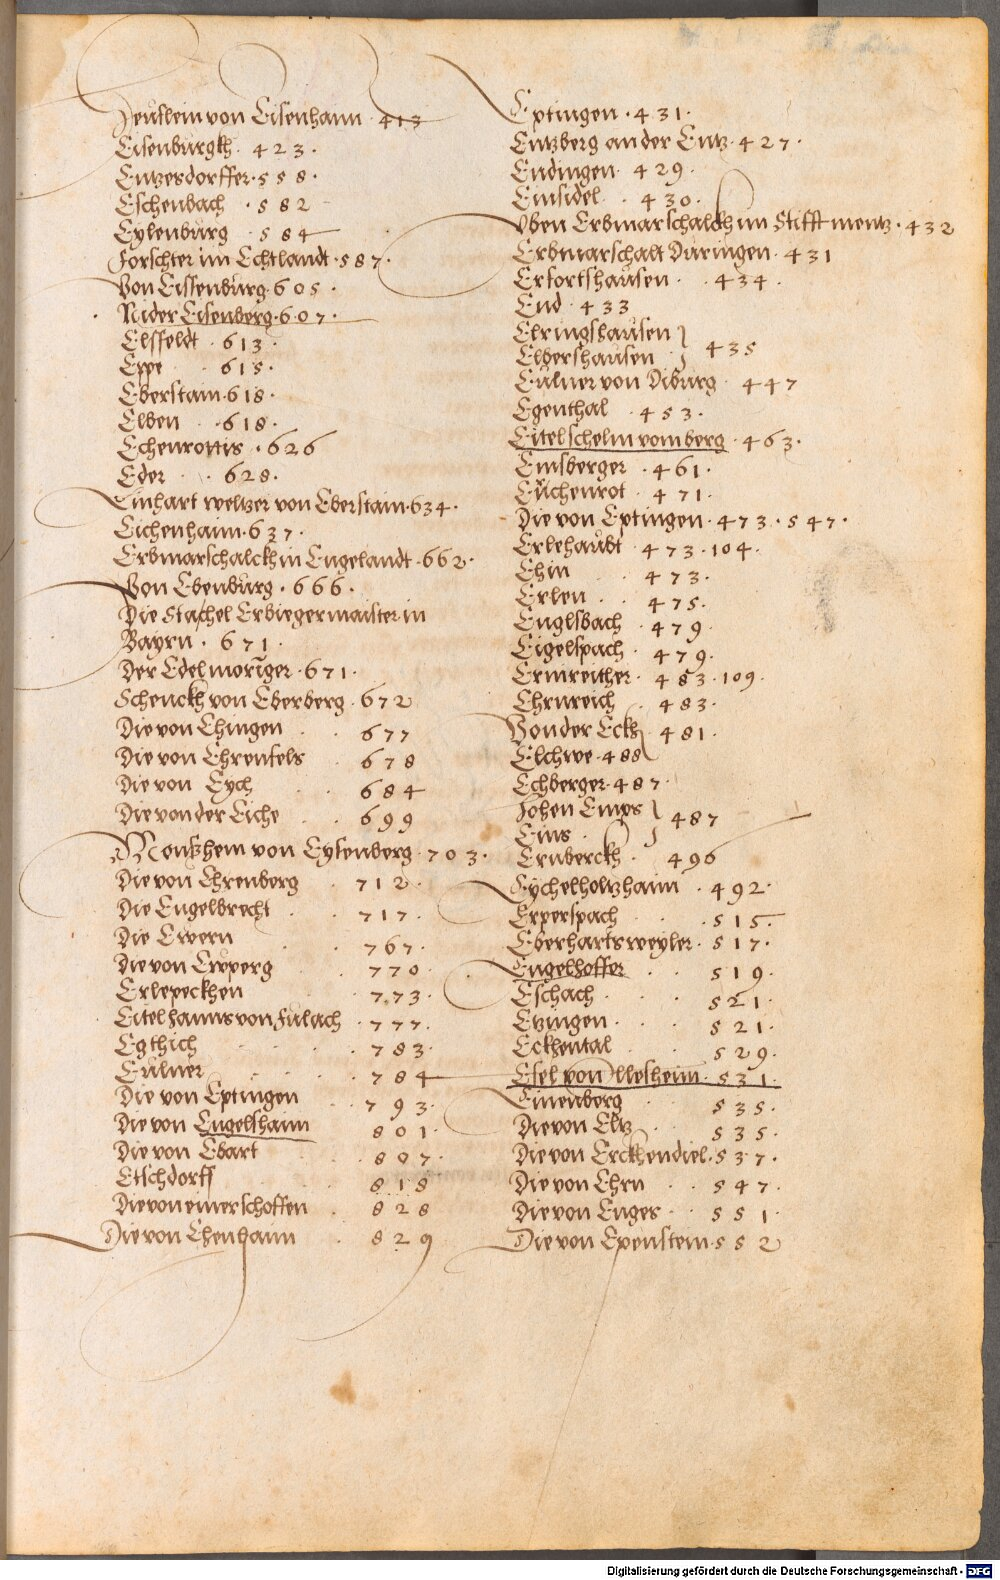 Jeuslein von Eisenhaim 413
Eisenburgkh. 423.
Entzesdorffer. 558.
Eschenbach. 582
Eylenburg. 584
Forschter im Echtlandt. 587.
Von Eissenburg. 605.
Nider Eisenberg. 607.
Elsfeldt. 613.
Eppe 615.
Eberstain. 618.
Elben. 618.
Echenrottis. 626
Eder. 628.
Einhart weltzer von Eberstain. 634.
Eichenhaim. 637.
Erbmarschalckh in Engelandt. 662.
Von Ebenburg. 666.
Die Stachel Erbiegermaister in
Bayrn. 671.
Der Edelmoringer. 671.
Schenckh von Eberberg. 672
Die von Ehingen 677
Die von Ehrenfels 678
Die von Eych 684
Die von der Eiche 699
von Eysenberg. 703.
Die von Ehrenberg 712.
Die Engelbrecht 717.
Die Erbern 767.
Die von Erpperg 770
Erlepeckhen 773.
Eitel Hanns von Fulach 777.
Egthich 783.
Eulner 784
Die von Eptingen 793.
Die von Engelshaim 801.
Die von Ebart 807.
Etschdorff 818
Die von einerschoffen 828
Die von Ehenhaim 829
Eptingen. 431.
Entzberg an der Entz. 427.
Endingen. 429.
Einsidel. 430.
Oben Erbmarschalckh im Stifft mentz. 432
Erbmarschalt Duringen. 431
Erfortshausen. 434.
End. 433
Elringshausen }
Elbershausen } 435
Eulner von Diburg. 447
Egenthal. 453.
Eitelschelm vom berg. 463.
Emsberger. 461.
Euchenrot. 471.
Die von Eptingen. 473. 547.
Erlehaubt. 473. 104.
Ehin 473.
Erlen 475.
Englsbach 479.
Eigelspach. 479.
Ermreither. 483. 109.
Ehrnreich 483.
Von der Eckh 481.
Elchwe. 488
Echberger. 487.
Hohen Emps }
Ems } 487
Ernberckh. 496
Eychelholtzhaim. 492.
Erperspach 515
Eberhartsweyler. 517.
Engelhoffer 519.
Eschach. 521.
Etzingen. 521.
Eckhental 529.
Esel von Illesheim. 531.
Einenberg 535.
Die von Eltz 535.
Die von Erckhendiel. 537.
Die von Ehrn 547.
Die von Enges 551.
Die von Epenstein. 552
Digitalisierung gefördert durch die Deutsche Forschungsgemeinschaft - DFG